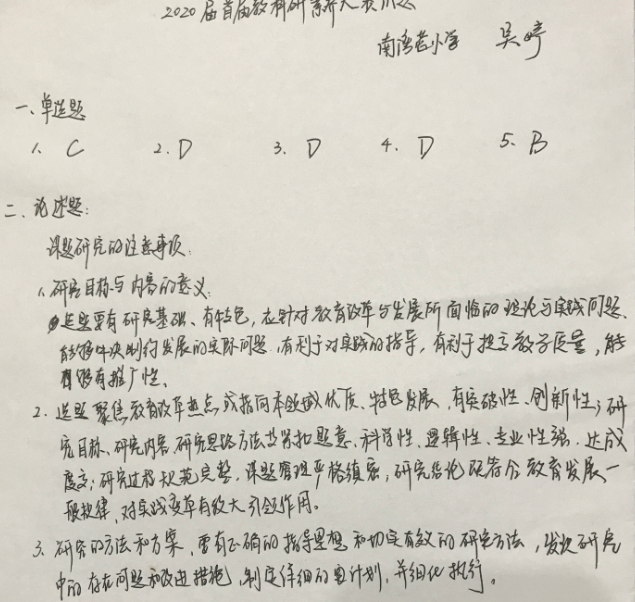 2020届首届教科研素养大赛
南湾营小学 吴婷
一、单选题
1、C 2、D 3、D 4、D 5、B
二、论述题:
课题研究的注意事项:
1、研究目标与内容的意义:
选题要有研究基础、有特色,应针对教育改革与发展所面临的理论与实践问题、
能够解决制约发展的实际问题,有利于对实践的指导,有利于提高教学质量,能
够有推广性。
2、选题聚焦教育改革热点或指向本领域优质、特色发展,有突破性、创新性;研
究目标、研究内容、研究思路方法等紧扣题意、科学性、逻辑性、专业性强、达成
度高;研究过程规范完整,课题管理严格缜密,研究结论既符合教育发展一
般规律,对实践变革有较大引领作用。
3、研究的方法和方案,要有正确的指导思想和切实有效的研究方法,发次研究
中的存在问题和改进措施,制定详细的计划,并细化执行。